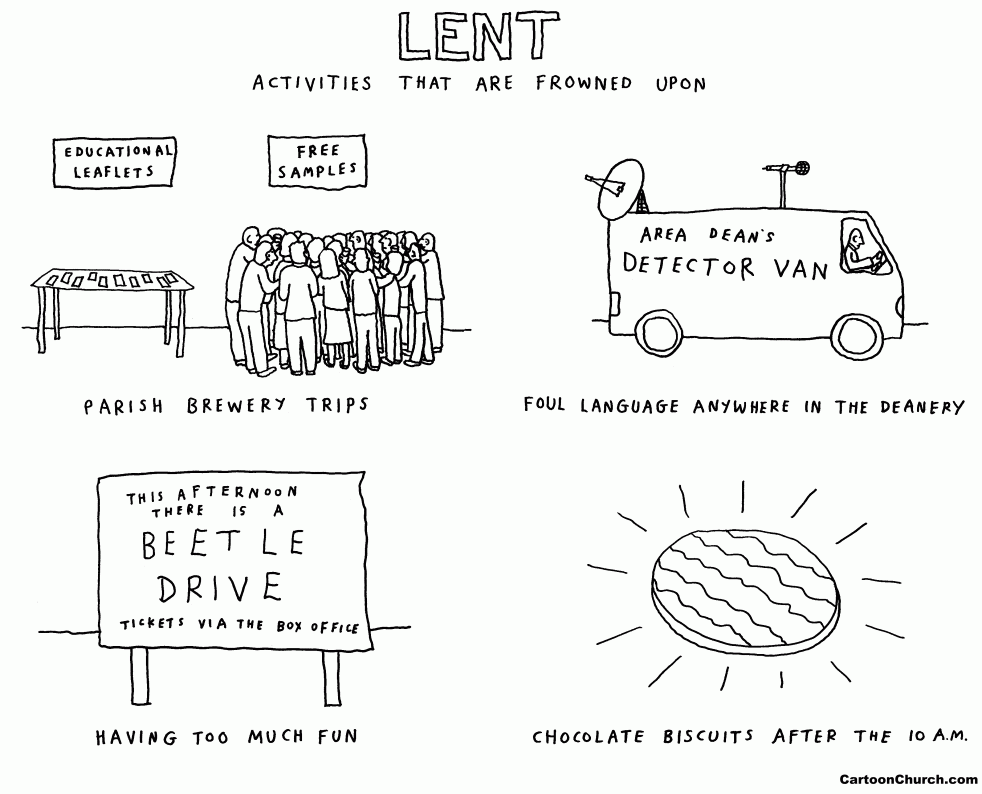 LENT
ACTIVITIES THAT ARE FROWNED UPON
EDUCATIONAL
LEAFLETS
FREE
SAMPLES
PARISH BREWERY TRIPS
AREA DEAN'S
DETECTOR VAN
FOUL LANGUAGE ANYWHERE IN THE DEANERY
THIS AFTERNOON
THERE IS A
BEETLE
DRIVE
TICKETS VIA THE BOX OFFICE
HAVING TOO MUCH FUN
CHOCOLATE BISCUITS AFTER THE 10 A.M.
CartoonChurch.com